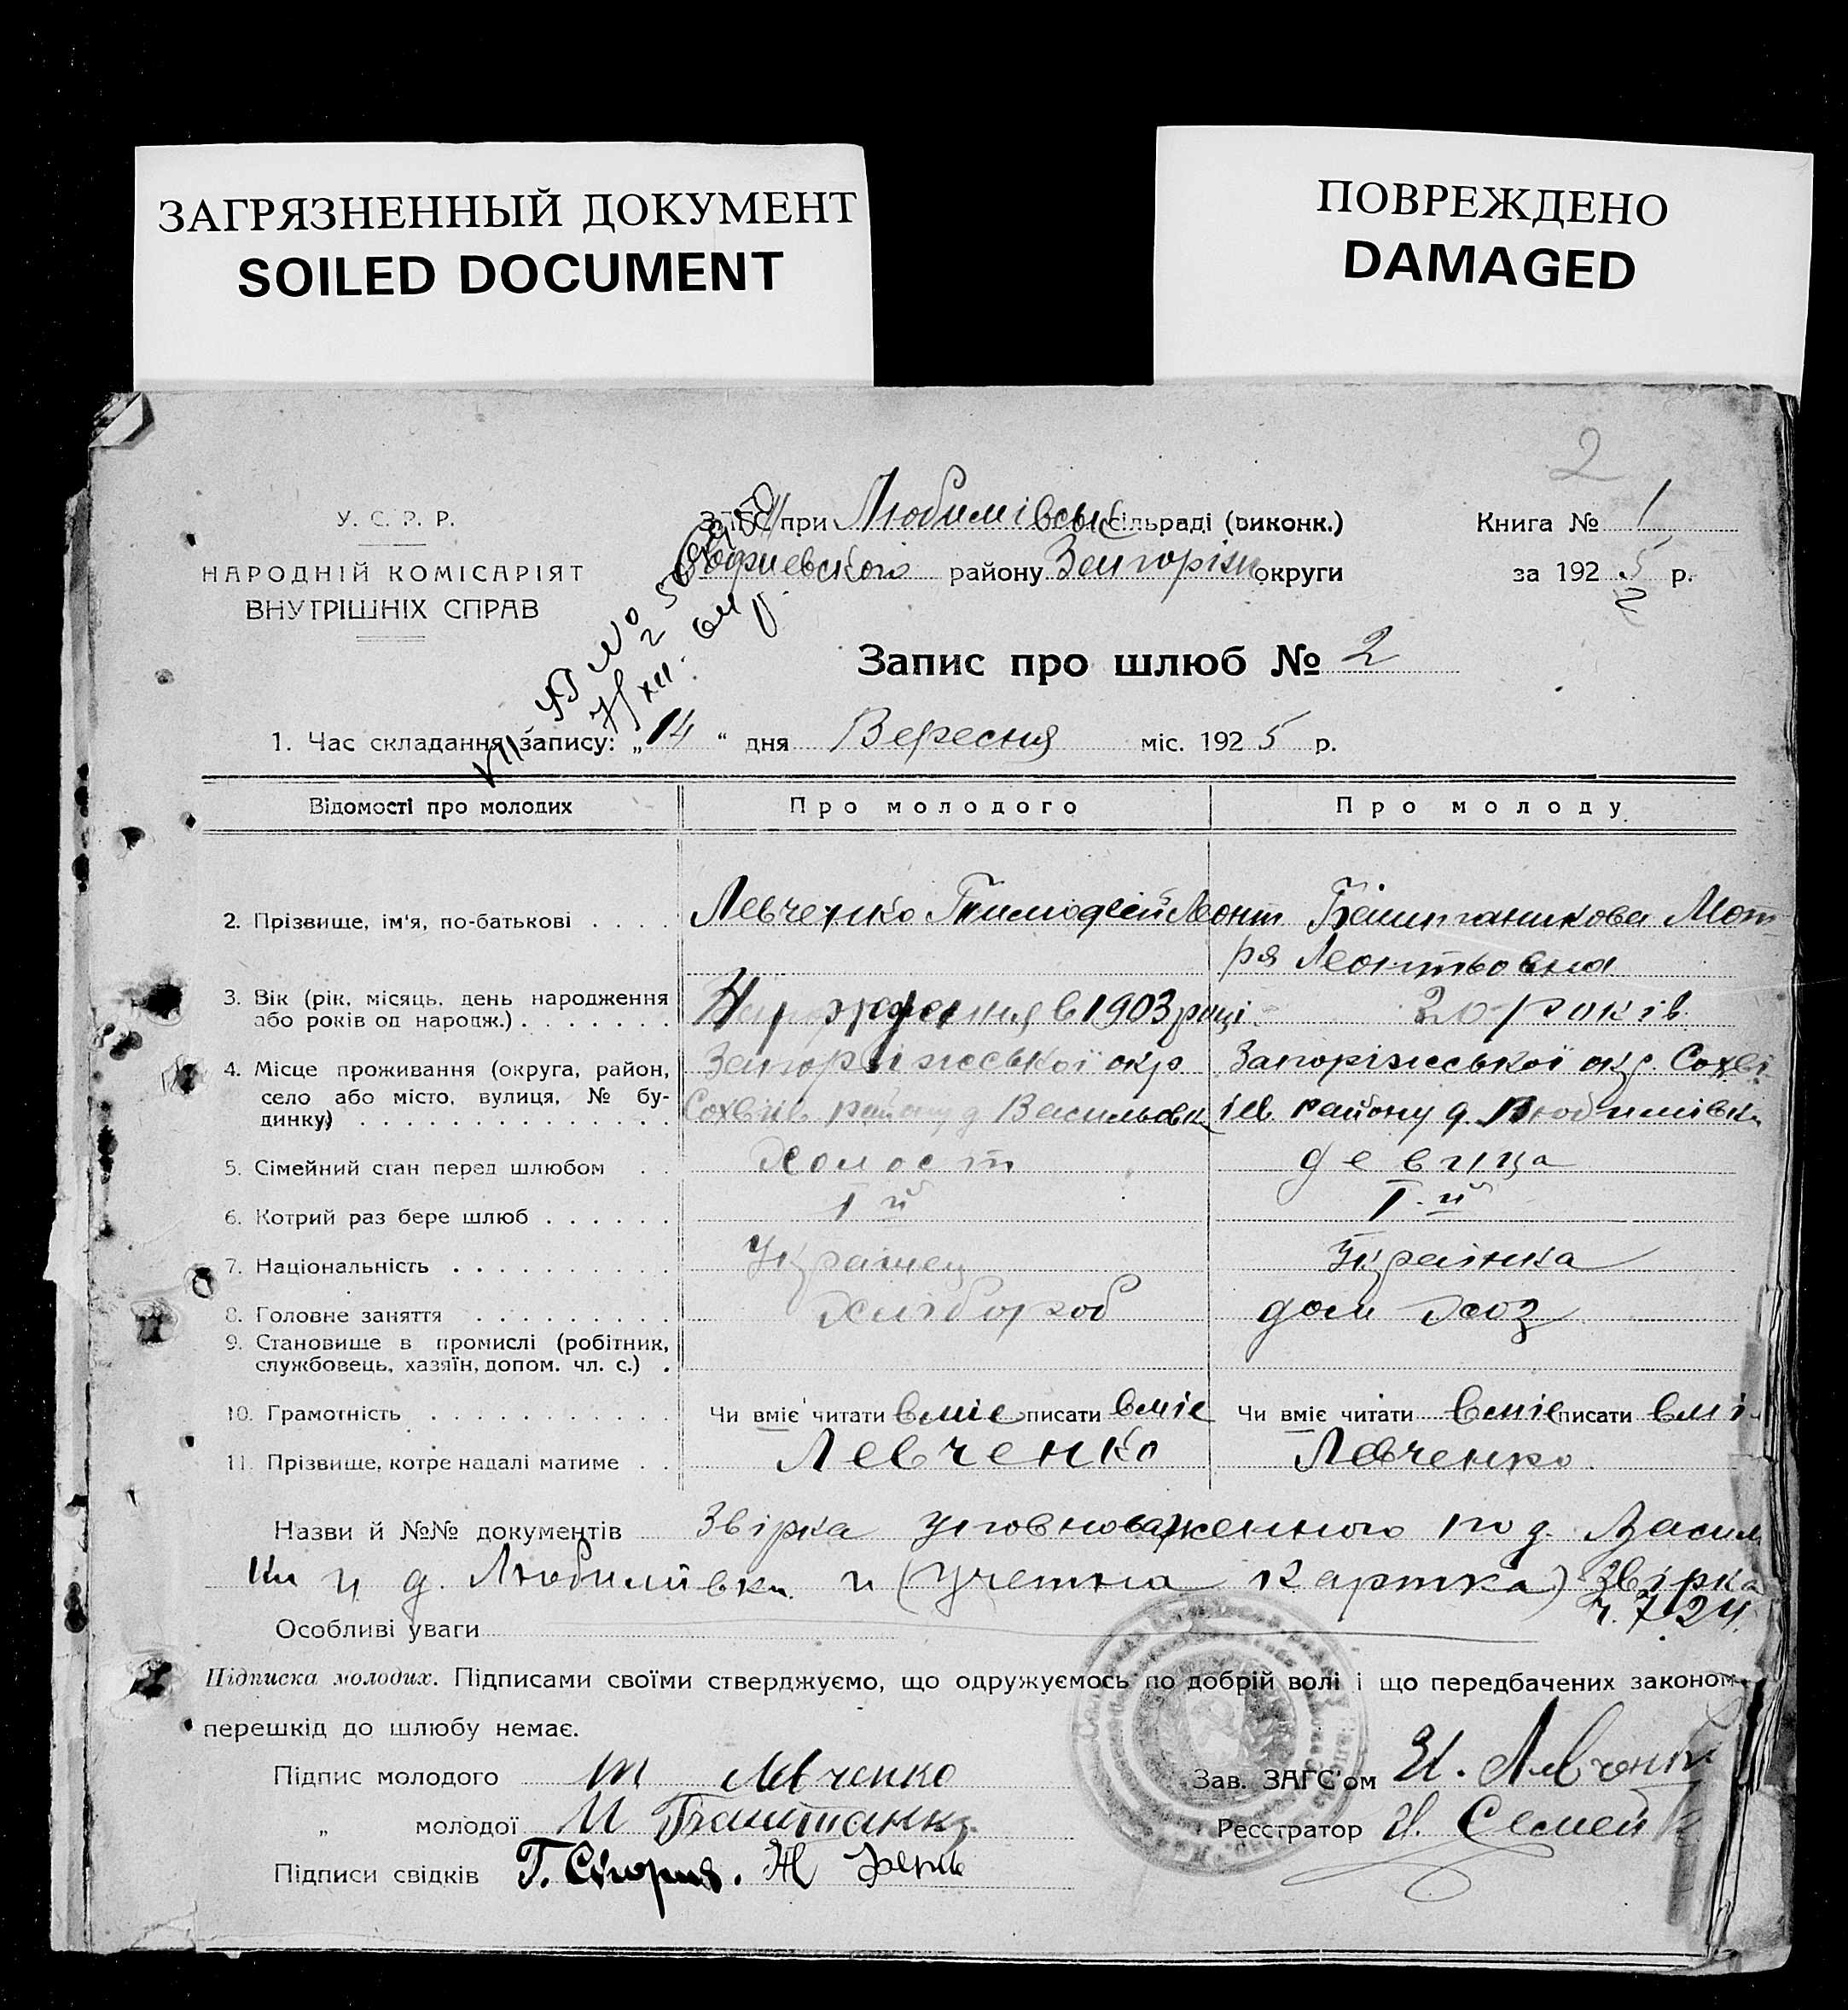 ЗАГРЯЗНЕННЫЙ ДОКУМЕНТ
SOILED DOCUMENT
ПОВРЕЖДЕНО
DAMAGED
2
У. С. Р. Р.
НАРОДНІЙ КОМІСАРІЯТ
ВНУТРІШНІХ СПРАВ
при Любимівськ сільраді (виконк.)
району Запоріж округи
Книга № 1
за 1925 р.
Запис про шлюб № 2
1. Час складання запису: „14“ дня Вересня міс. 1925 р.
Відомості про молодих Про молодого Про молоду
2. Прізвище, ім'я, по-батькові . . . . Левченко Тимофей Леонт Баштаникова Мот
ря Леонтьовна
3. Вік (рік, місяць, день народження Нарождения в 1903 році 20 років
або років од народж.) . . . . . . .
4. Місце проживання (округа, район, Запоріжської окр Запоріжської окр. Сохві
село або місто, вулиця, № бу- Сохвіїв району д Васильовк їв. району д. Любимівки
динку) . . . . . . . . . . . . .
5. Сімейний стан перед шлюбом . . Холост девица
6. Котрий раз бере шлюб . . . . . . I й I-й
7. Національність . . . . . . . . . . Украінец Украінка
8. Головне заняття . . . . . . . . . Хлібороб дом хоз
9. Становище в промислі (робітник,
службовець, хазяїн, допом. чл. с.) .
10. Грамотність . . . . . . . . . . . Чи вміє читати вміє писати вміє Чи вміє читати вміє писати вмі
11. Прізвище, котре надалі матиме . . Левченко Левченко
Назви й №№ документів Звірка уповноваженного по д. Васил
ки и д. Любимівки и (учетна картка) Звірка
Особливі уваги
Підписка молодих. Підписами своїми стверджуємо, що одружуємось по добрій волі і що передбачених законом
перешкід до шлюбу немає.
Підпис молодого Т Левченко
„ молодої М Баштаник
Підписи свідків Г.
Зав. ЗАГС'ом И. Левченк
Реєстратор И. Семей